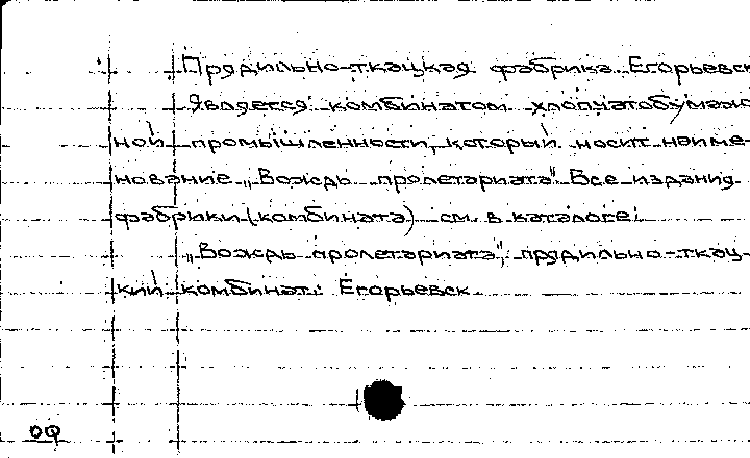 Прядильно-ткацкая фабрика Егорьевск
является комбинатом хлопчатобумаж
ной промышленности, который носит наиме-
нование „Вождь пролетариата". Все издания
фабрики (комбината) см. в каталоге:
„Вождь пролетариата", прядильно-ткац-
кий комбинат: Егорьевск